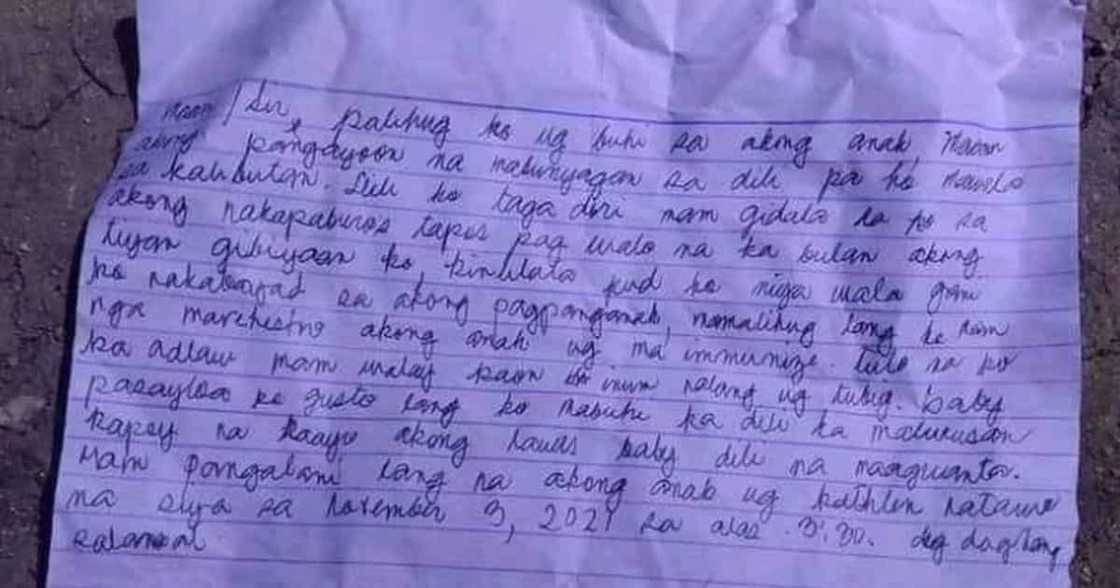 Maam / Sir, palihug ko ug buhi sa akong anak, maam
akong pangayoon na mabunyagan sa dili pa ko mawala
sa kalibutan. Dili ko taga diri mam gidala ra ko sa
akong nakapaburos tapos pag walo na ka bulan akong
tiyan gibiyaan ko, kinulata pud ko niya wala gani
ko nakabayad sa akong pagpanganak, namalihug lang ko mam
nga marehistro akong anak ug ma immunize. tulo na ko
ka adlaw mam walay kaon inum nalang ug tubig. baby
pasayloa ko gusto lang ko mabuhi ka dili ka madukusan
kapoy na kaayo akong lawas baby dili na maagwanta.
Mam pangalani lang na akong anak ug kathlen natawo
na siya sa November 3, 2021 sa alas 3:30. daghang
salamat